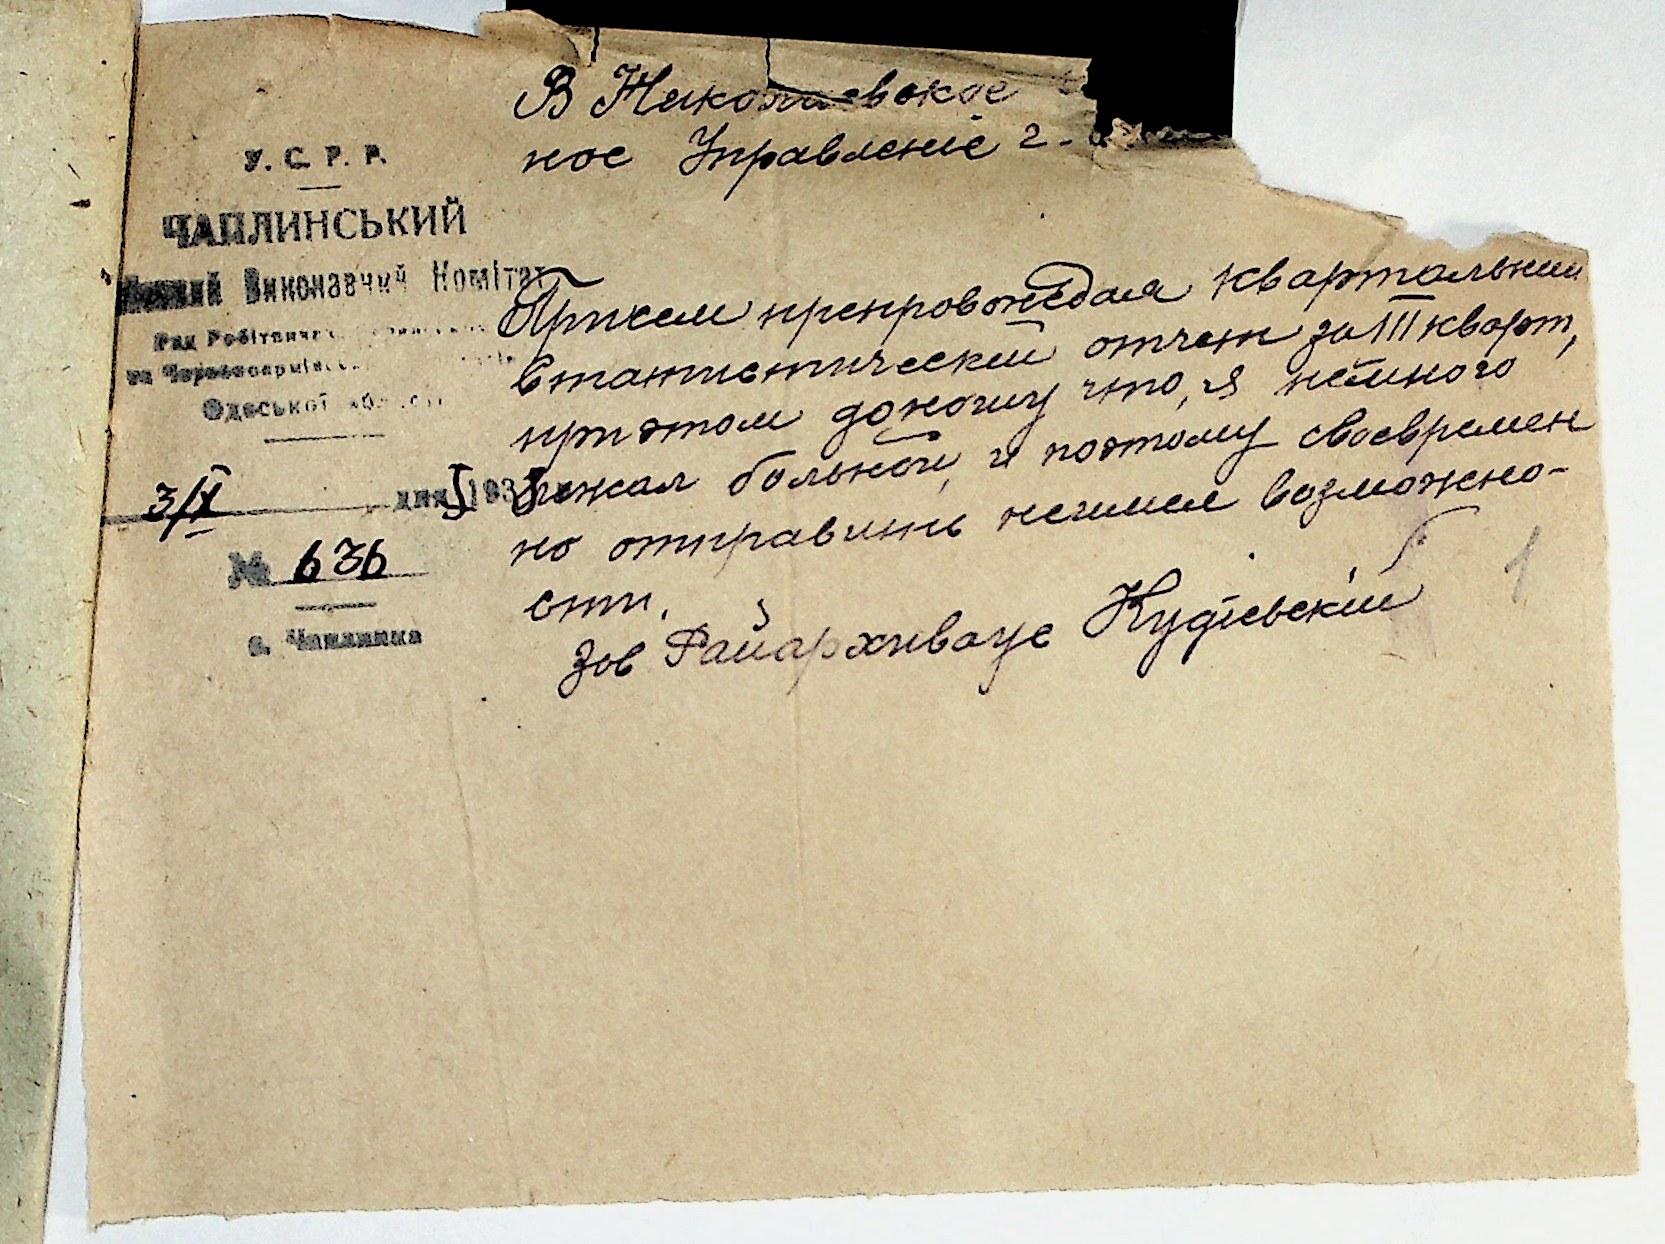 У. С. Р. Р.
ЧАПЛИНСЬКИЙ
Виконавчий Комітет
Рад
Одеської
3/X дня 193
№ 636
с. Чаплинка
В Николаевское
ное Управленіе г.
При сем препровождая квартальний
статистический отчет за III кварт,
при этом доношу что, я немного
лежал больной, и поэтому своевремен
но отправить неимел возможно-
сти.
Зав Райархиваус Кудіевскій
1